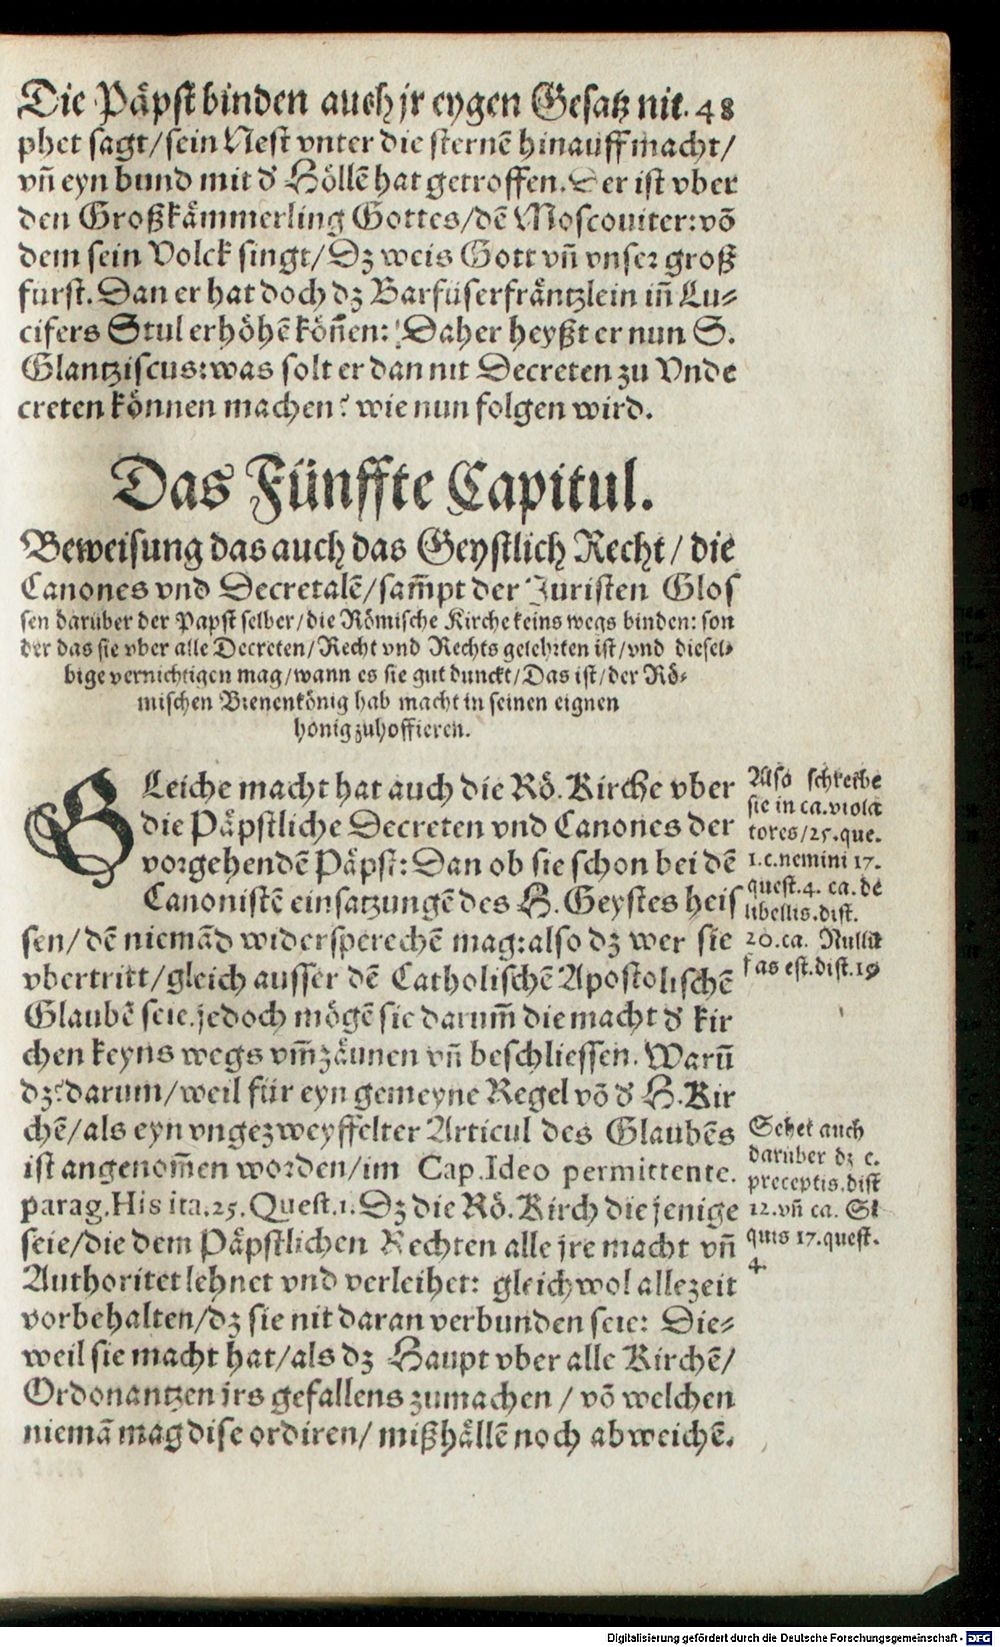 Die Päpst binden auch jr eygen Gesatz nit. 48
phet sagt/sein Nest vnter die sternē hinauff macht/
vñ eyn bund mit d' Höllē hat getroffen. Der ist vber
den Großkämmerling Gottes/dē Moscouiter: võ
dem sein Volck singt/Dz weis Gott vñ vnser groß
fürst. Dan er hat doch dz Barfüserfräntzlein iñ Lu-
cifers Stul erhöhē köñen: Daher heyßt er nun S.
Glantziscus: was solt er dan nit Decreten zu Vnde
creten können machen? wie nun folgen wird.
Das Fünffte Capitul.
Beweisung das auch das Geystlich Recht/ die
Canones vnd Decretalē/sam̄pt der Juristen Glos
sen darüber der Papst selber/die Römische Kirche keins wegs binden: son
der das sie vber alle Decreten/Recht vnd Rechts gelehrten ist/vnd diesel-
bige vernichtigen mag/wann es sie gut dunckt/Das ist/der Rö-
mischen Bienenkönig hab macht in seinen eignen
honig zuhoffieren.
GLeiche macht hat auch die Rö. Kirche vber
die Päpstliche Decreten vnd Canones der
vorgehendē Päpst: Dan ob sie schon bei dē
Canonistē einsatzungē des H. Geystes heis
sen/dē niemād widersperechē mag: also dz wer sie
vbertritt/gleich ausser dē Catholischē Apostolischē
Glaubē seie. jedoch mögē sie darum̄ die macht d' kir
chen keyns wegs vm̄zäunen vñ beschliessen. Warū
dz? darum/weil für eyn gemeyne Regel võ d' H. Kir
chē/als eyn vngezweyffelter Articul des Glaubēs
ist angenom̄en worden/im Cap. Ideo permittente.
parag. His ita. 25. Quest. 1. Dz die Rö. Kirch die jenige
seie/die dem Päpstlichen Rechten alle jre macht vñ
Authoritet lehnet vnd verleihet: gleichwol allezeit
vorbehalten/dz sie nit daran verbunden seie: Die-
weil sie macht hat/als dz Haupt vber alle Kirchē/
Ordonantzen jrs gefallens zumachen / võ welchen
niemā mag dise ordiren/ mißhällē noch abweichē.
Also schreibe
sie in ca. violā
tores/25. que.
1. c. nemini 17.
quest. 4. ca. de
libellis. dist.
20. ca. Nulli
fas est. dist. 19
Sehet auch
darüber dz c.
preceptis. dist
12. vñ ca. Si
quis 17. quest.
4.
Digitalisierung gefördert durch die Deutsche Forschungsgemeinschaft - DFG